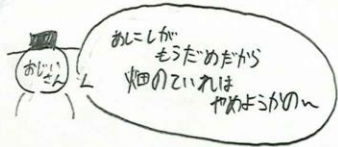 おじい
さん
あしこしが
もうだめだから
畑のていれは
やめようかの〜